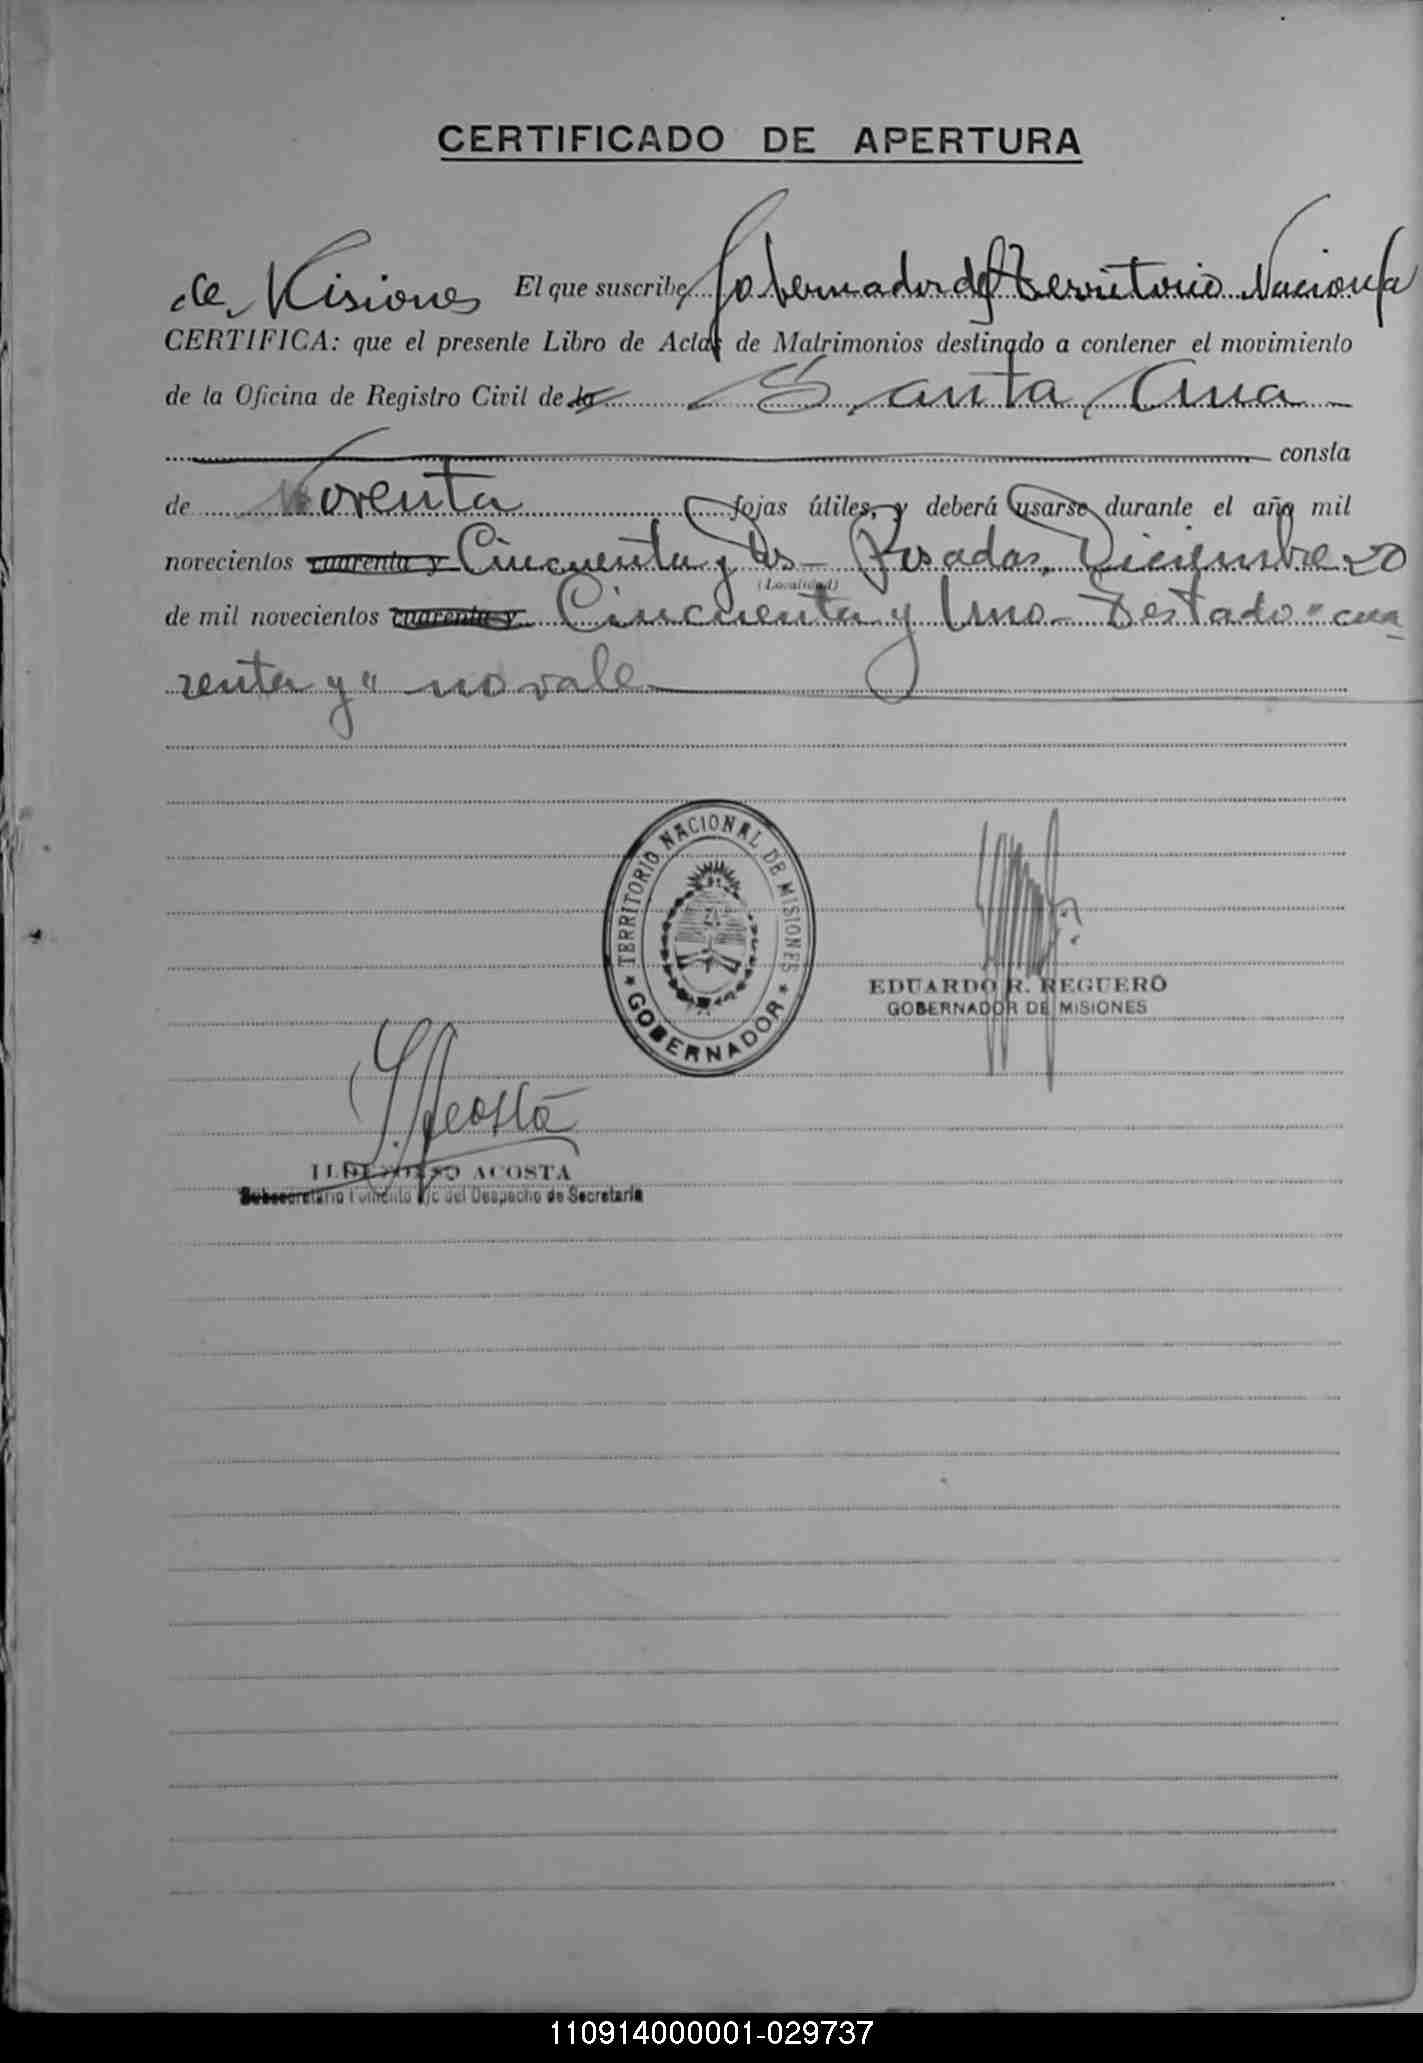 CERTIFICADO DE APERTURA
El que suscribe, Gobernador del Territorio Nacional
de Misiones
CERTIFICA: que el presente Libro de Actas de Matrimonios destinado a contener el movimiento
de la Oficina de Registro Civil de la Santa Ana
consta
de Noventa fojas útiles, y deberá usarse durante el año mil
novecientos cuarenta y Cincuenta y Dos - Posadas, Diciembre 20
(Localidad)
de mil novecientos cuarenta y Cincuenta y Uno - Testado "cua
renta y" no vale
TERRITORIO NACIONAL DE MISIONES
* GOBERNADOR *
EDUARDO R. REGUERO
GOBERNADOR DE MISIONES
I. Acosta
ILDEFONSO ACOSTA
Subsecretario Fomento a/c del Despacho de Secretaría
110914000001-029737